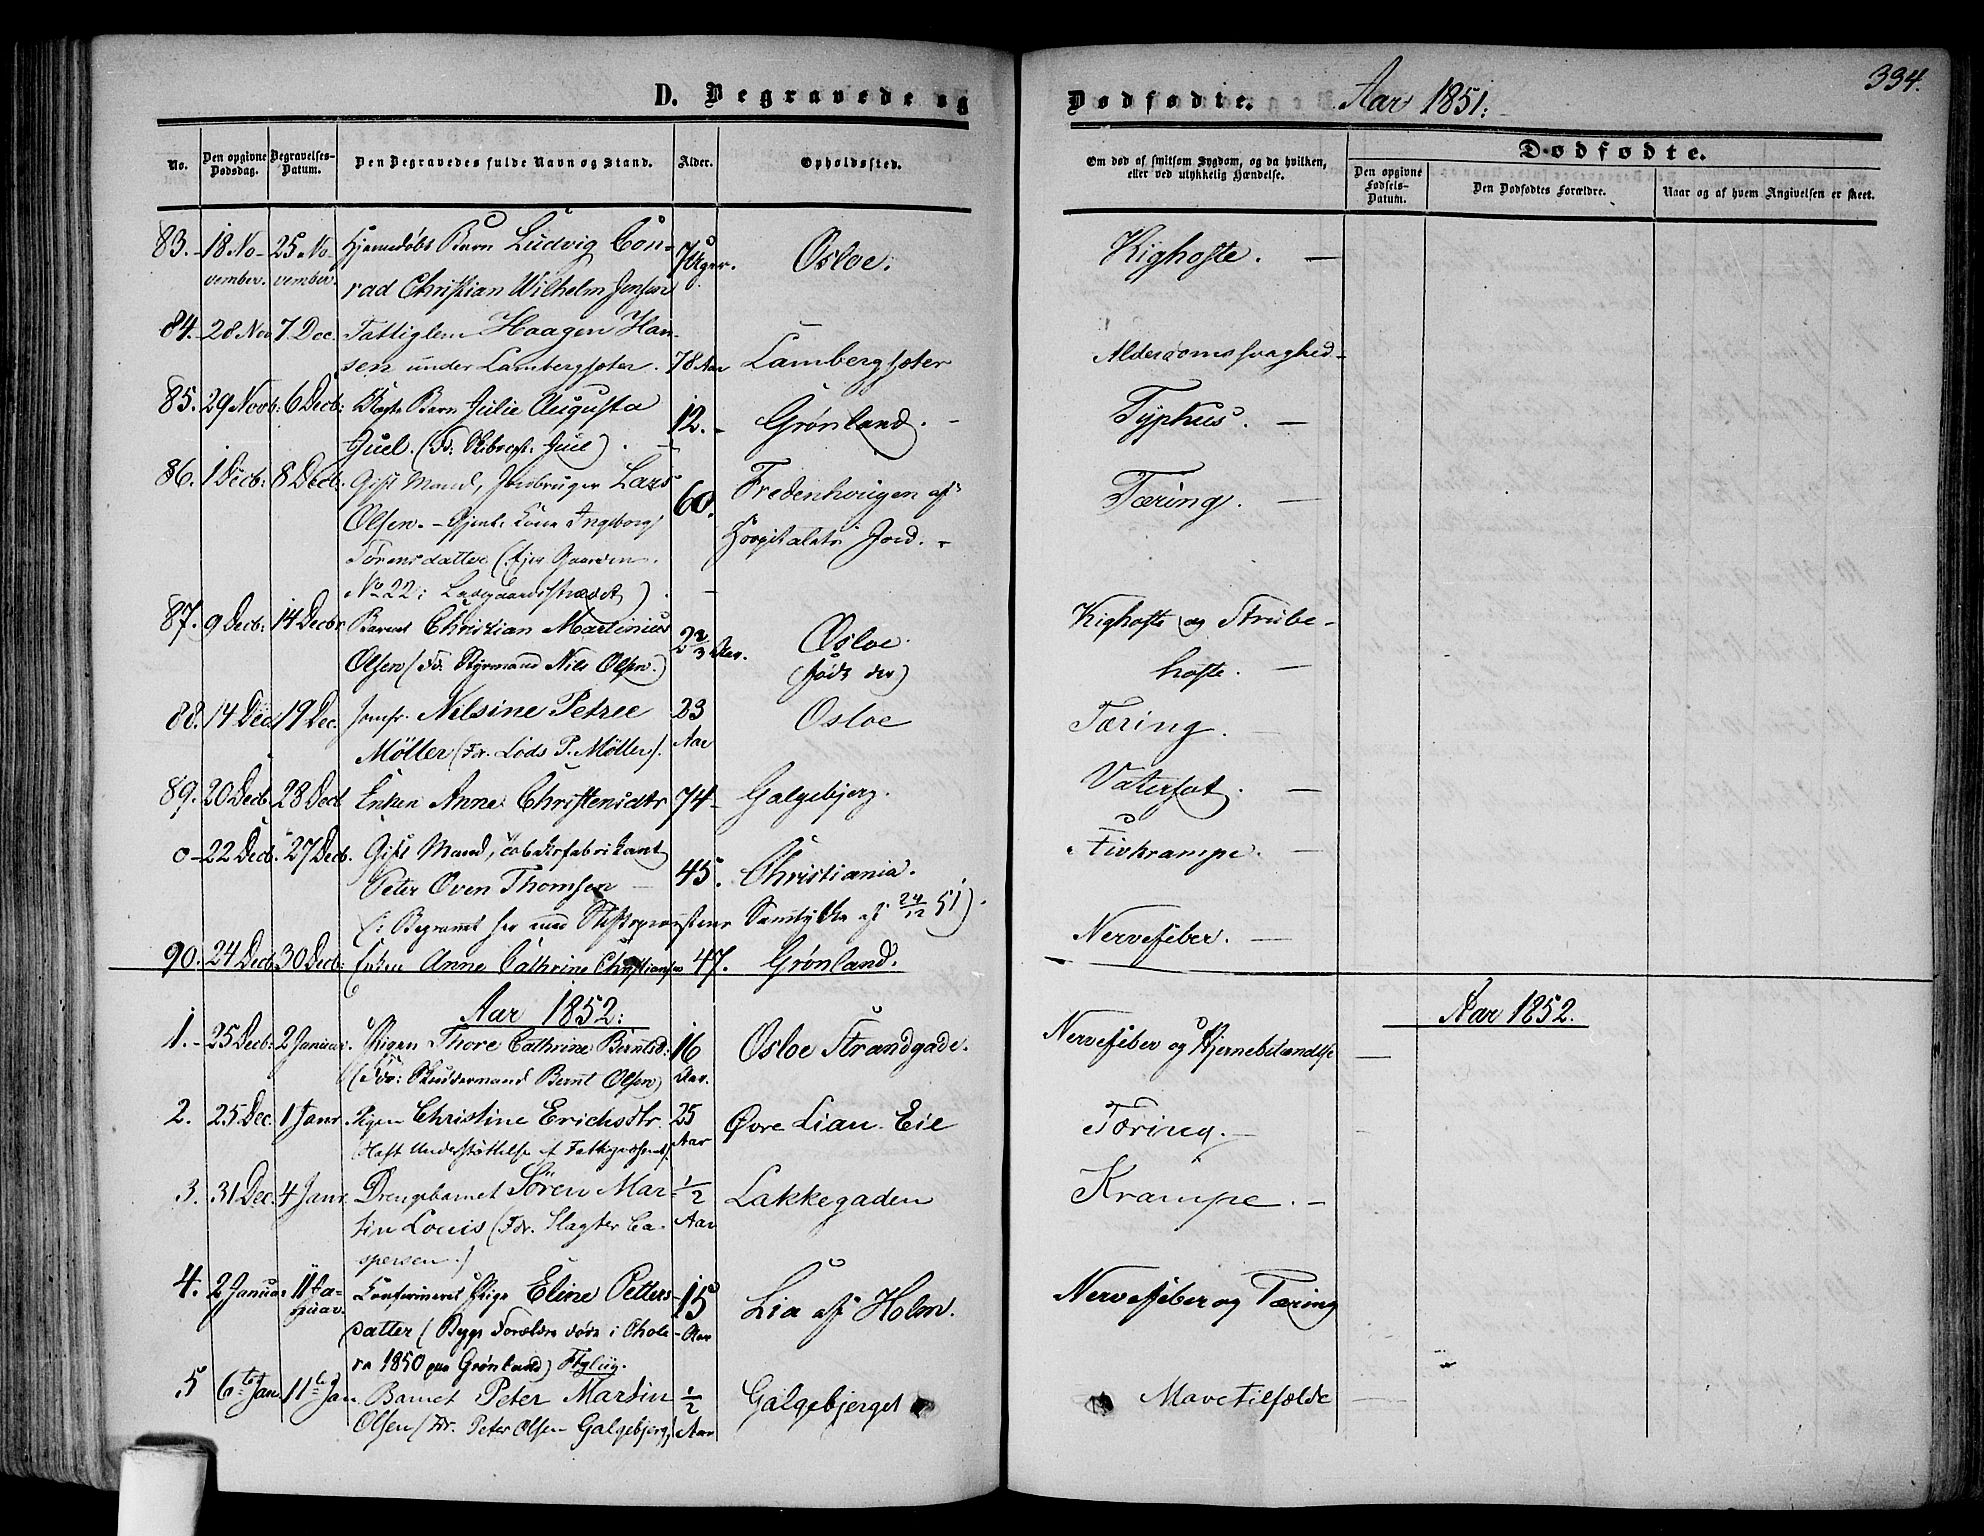 D. Begravede og
Dødfødte. Aar 1851.
334.
No.
Den opgivne Dødsdag.
Begravelses-Datum.
Den Begravedes fulde Navn og Stand.
Alder.
Opholdssted.
Om død af smitsom Sygdom, og da hvilken,
eller ved ulykkelig Hændelse.
Dødfødte.
Den opgivne Fødsels-Datum.
Den Dødfødtes Forældre.
Naar og af hvem Angivelsen er skeet.
83. 18 No- 25 No- Hjemedøbt Barn Ludvig Con- 7 Uger. Osloe. Kighoste. —
vember. vember. rad Christian Wilhelm Jensen
84. 28 Nov 7 Dec. Fattiglem Haagen Han-
sen under Lambergsæter. 78 Aar Lambergsæter Alderdomssvaghed
85. 29 Novb: 6 Decb: Barn Julie Augusta 12. Grønland. Typhus. —
Juel. (Fdr: Juel)
86. 1 Decb: 8 Decb. Gift Mand, Jordbruger Lars 60. Fredenhougen af Tæring. —
Olsen. – Kone Ingeborg Hospitalets Jord.
Torensdatter (Ejer Gaarden
No 22 i Ladegaardsstrædet)
87. 9 Decb: 14 Decbr Barnet Christian Martinius 2 2/3 Aar. Osloe Kighoste og Strube-
Olsen (Fdr. Styrmand Nils Olsen.) (født der) hoste. —
88. 14 Dec 19 Dec. Jomfr. Nilsine Petree 23 Osloe Tæring.
Møller (Fdr. Lods P. Møller). Aar
89. 20 Decb. 28 Decb Enken Anne Christensdtr 74 Galgebjerg. Vatersot. —
0 – 22 Decb. 27 Decb. Gift Mand, Tobaksfabrikant
Peter Oven Thomsen 45. Christiania. —
(: Begravet her med Stiftsprovstens Samtykke af 24/12 51)
Nervefeber. —
90. 24 Decb. 30 Decb: Enken Anne Cathrine Christiansen 47. Grønland.
Aar 1852:
Aar 1852.
1. 25 Decb: 2 Januar. Pigen Thore Cathrine Berntsd: 16 Osloe Strandgade. Nervefeber og Hjernebetændelse
(Fdr: Bernt Olsen) Aar.
2. 25 Dec. 1 Janr. Pigen Christine Erichsdtr. 25 Øvre Lian Eie Tæring. —
(Havt Understøttelse af Fattigvæsenet). Aar
3. 31 Dec. 4 Janr. Drengebarnet Søren Mar- 1/2 Lakkegaden Krampe. —
tin Louis (Fdr. Slagter Ca- Aar
spersen.)
4. 2 Januar 11 Ja- Confirmeret Pige Eline Petters 15 Lia af Holm. Nervefeber og Tæring
nuar. datter (Begge Forældre døde i Chole- Aar
ra 1850 paa Grønland)
5 6te Jan. 11te Jan Barnet Peter Martin 1/2 Galgebjerget Mavetilfælde
Olsen (Fdr. Peter Olsen Galgebjerg) Aar